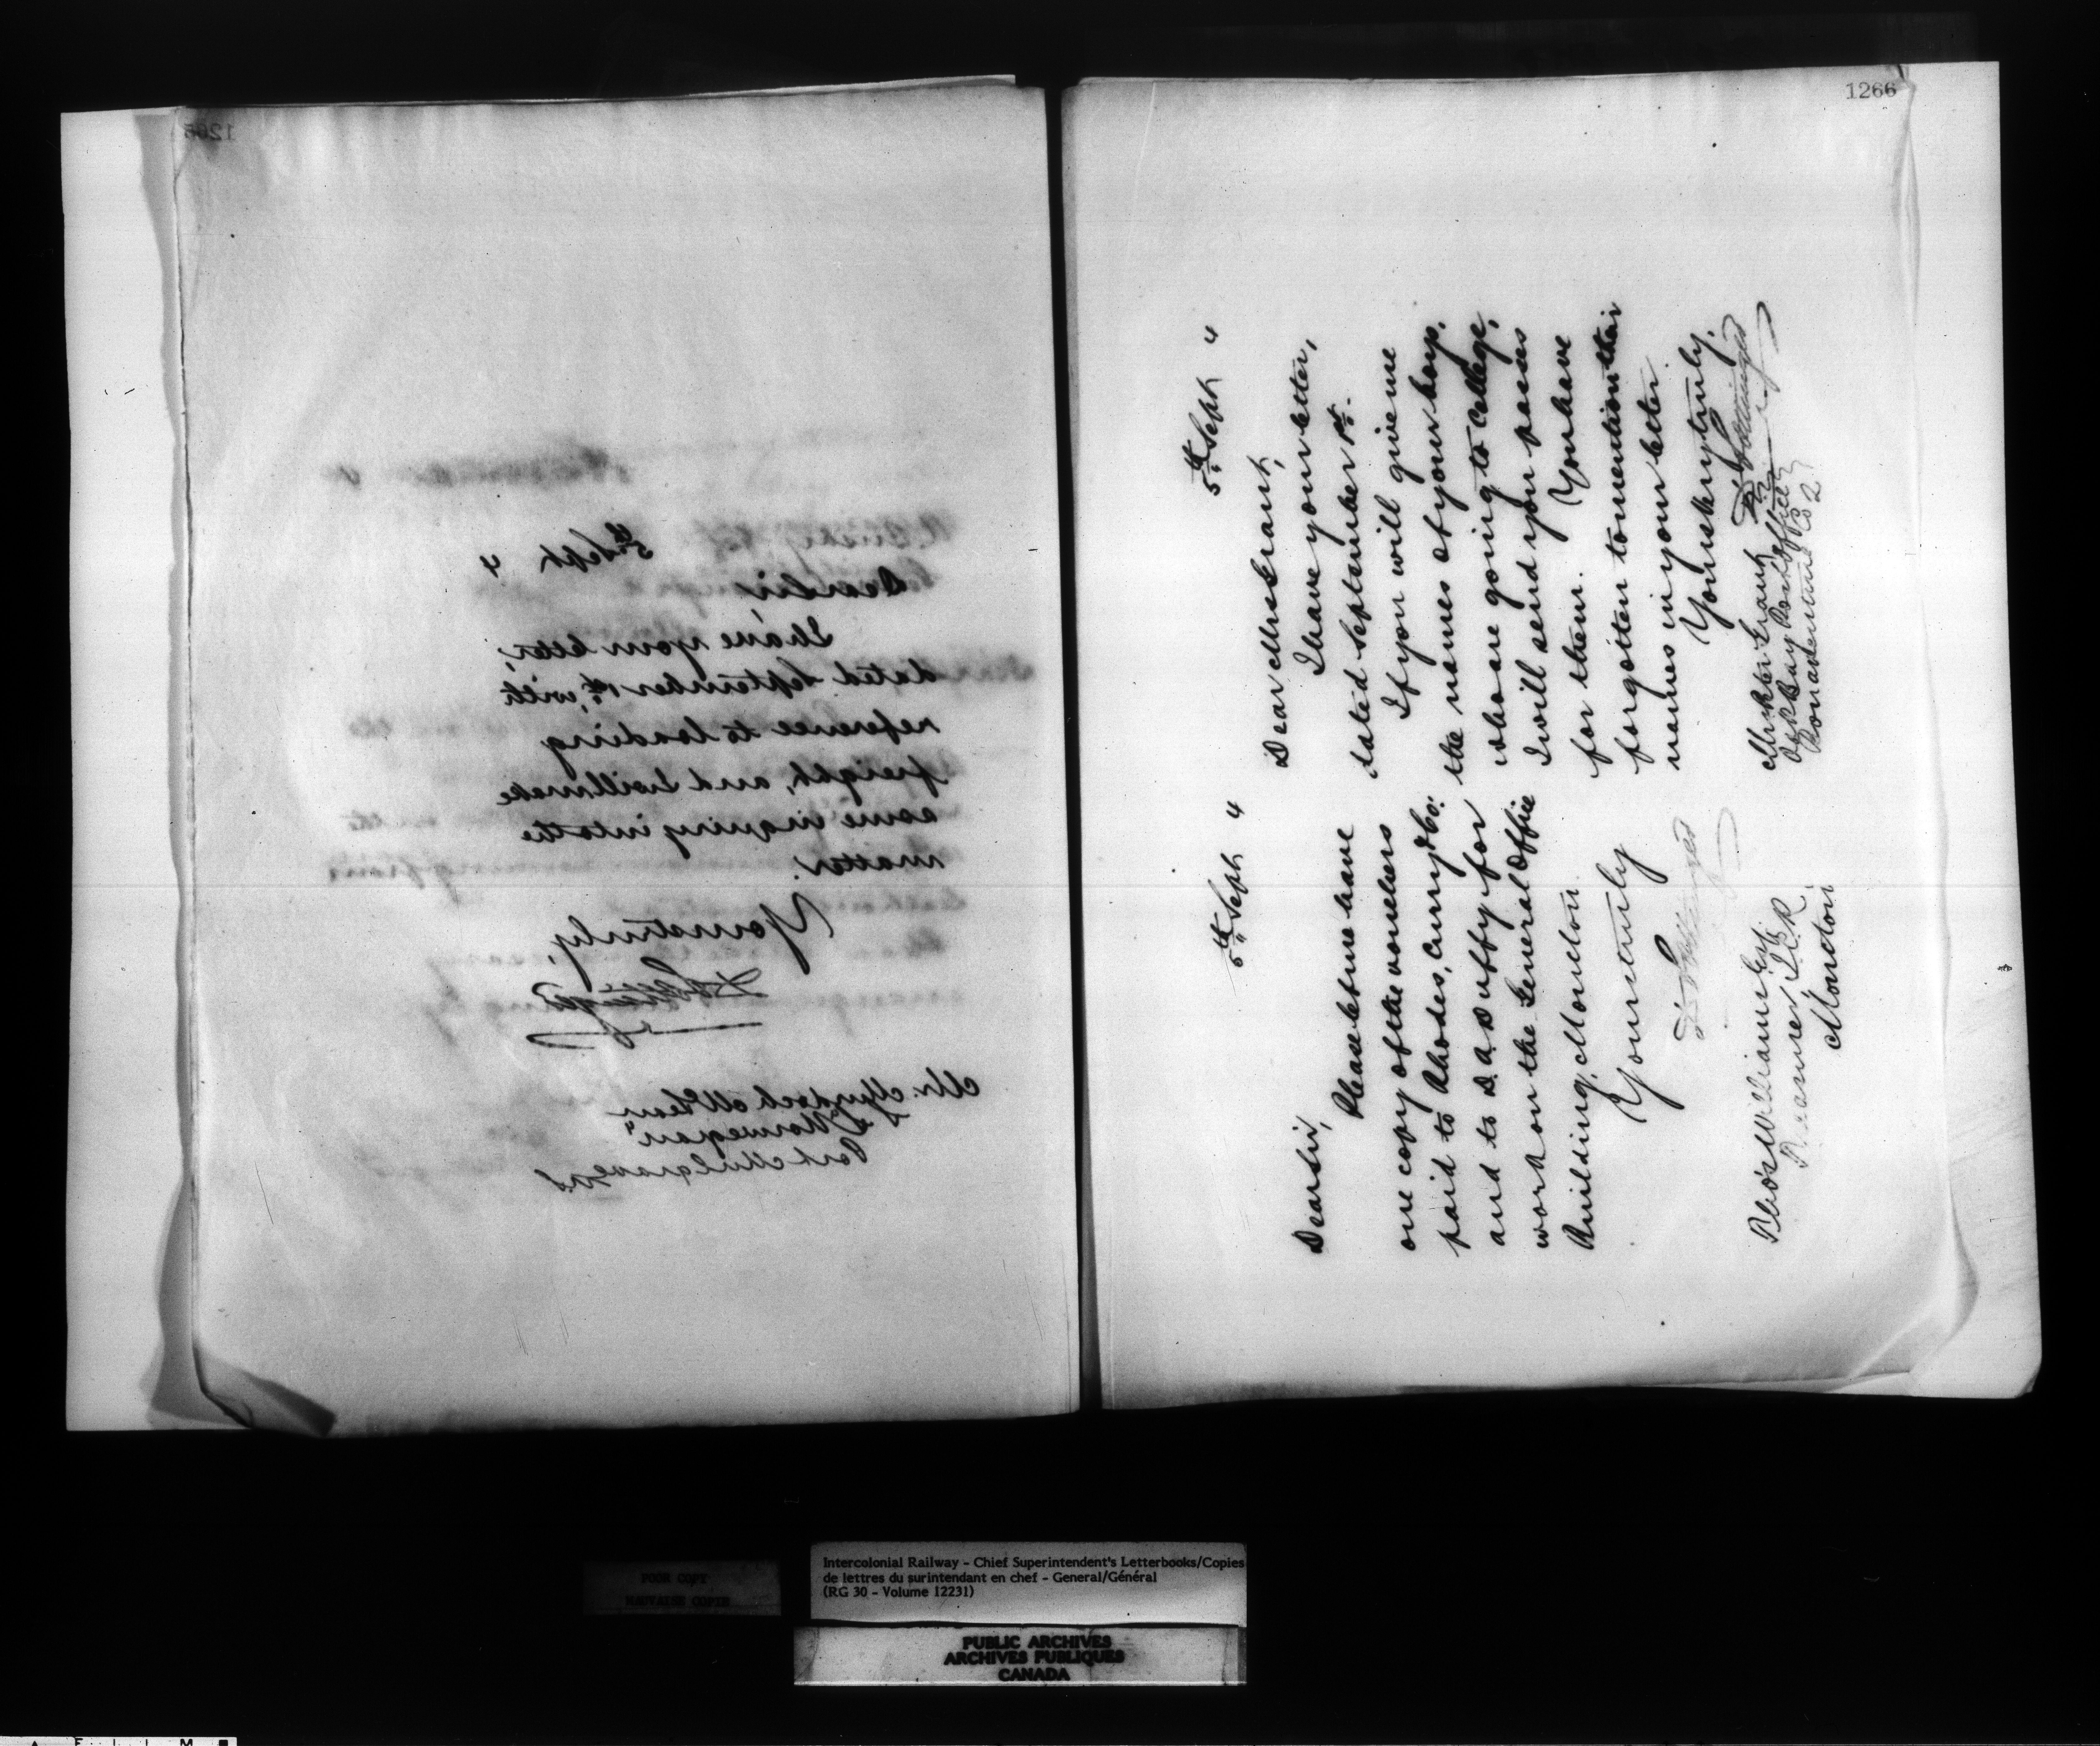 1265
5th Sept 4
Dear Sir,
I have your letter,
dated September 1st, with
reference to loading
freight, and I will make
some inquiry into the
matter.
Yours truly,
D Pottinger
Mr. Murdoch McLean
"Norwegian"
Port Mulgrave N.S.
1266
5th Sept 4
Dear Sir,
Please let me have
one copy of the vouchers
paid to Rhodes, Curry & Co:
and to D. A. Duffy for
work on the General Office
Building, Moncton.
Yours truly
D Pottinger
Thos Williams Esq
Treasurer, I.C.R.
Moncton
5th Sept 4
Dear Mrs Grant,
I have your letter,
dated September 1st.
If you will give me
the names of your boys,
who are going to College,
I will send you passes
for them. You have
forgotten to mention their
names in your letter.
Yours very truly,
D Pottinger
Grant
Post Office
Bonaventure Co
Intercolonial Railway - Chief Superintendent's Letterbooks/Copies
de lettres du surintendant en chef - General/Général
(RG 30 - Volume 12231)
POOR COPY
MAUVAISE COPIE
PUBLIC ARCHIVES
ARCHIVES PUBLIQUES
CANADA